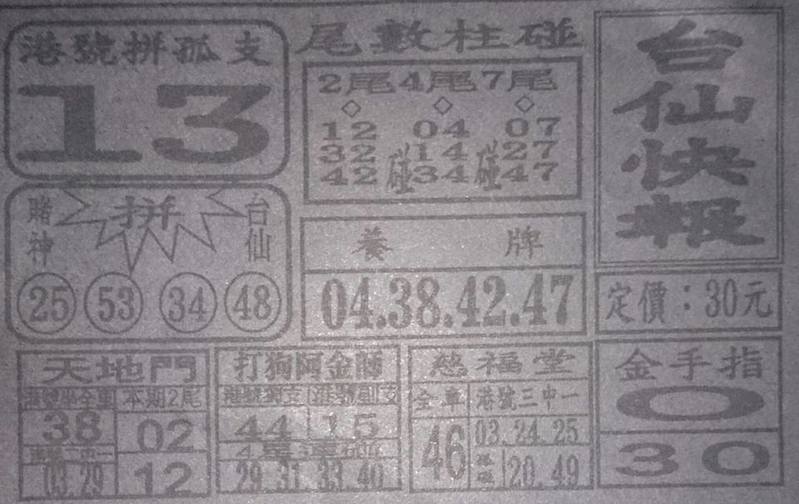 港號拼孤支
13
賭神
拼
台仙
25 53 34 48
尾數柱碰
2尾4尾7尾
12 04 07
32 碰 14 碰 27
42 34 47
養牌
04.38.42.47
台仙快報
定價：30元
天地門
港號坐全車 本期2尾
38 02
03.29 12
打狗阿金師
港號獨支 港號副支
44 15
29.31.33.40
慈福堂
全車 港號三中一
46 03.24.25
20.49
金手指
0
30